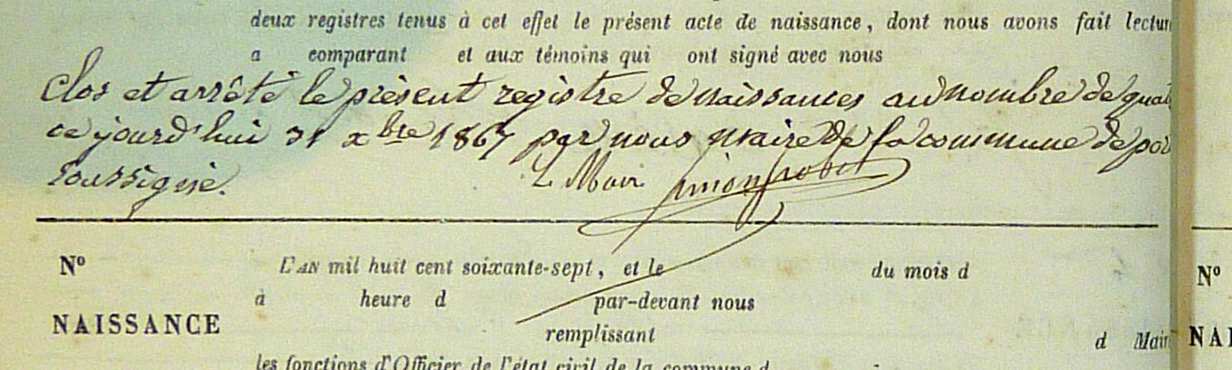 deux registres tenus à cet effet le présent acte de naissance, dont nous avons fait lectur
a comparant et aux témoins qui ont signé avec nous
Clos et arrêté le présent registre de naissances au nombre de quat
ce jourd'hui 31 xbre 1867 par nous maire de la commune de
soussigné.
L Mair
Nº L'AN mil huit cent soixante-sept, et le du mois d
à heure d par-devant nous
NAISSANCE
remplissant
d Mair
les fonctions d'Officier de l'état civil de la commune d
Nº
NAI